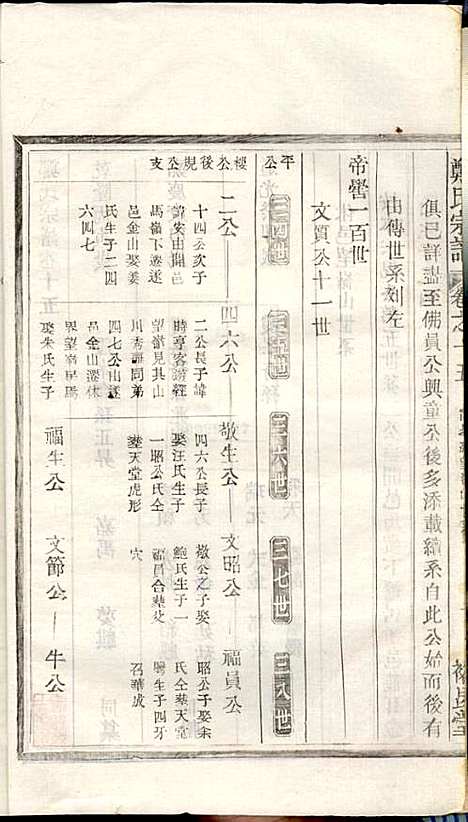 鄭氏宗譜 卷之十五
俱已詳盡至佛員公興童公後多添載續系自此公始而後有
由傳世系列左
帝嚳一百世
文質公十一世
平公 規後公 樓公支
三四世 三五世 三六世 三七世 三八世
二公——四六公——敬生公——文昭公——福員公
十四公次子
馬嶺下遷遂
邑金山娶姜
氏生子二四
六四七
二公長子諱
時亨客游經
望嶺見其山
川秀麗同弟
四七公山遂
邑金山遂休
娶朱氏生子
四六公長子
娶汪氏生子
一昭公氏全
塟天堂虎形
敬公之子娶
鮑氏生子一
福昌合塟父
穴
昭公子娶余
氏仝塟天堂
生子四牙
召華成
福生公 文節公——牛公